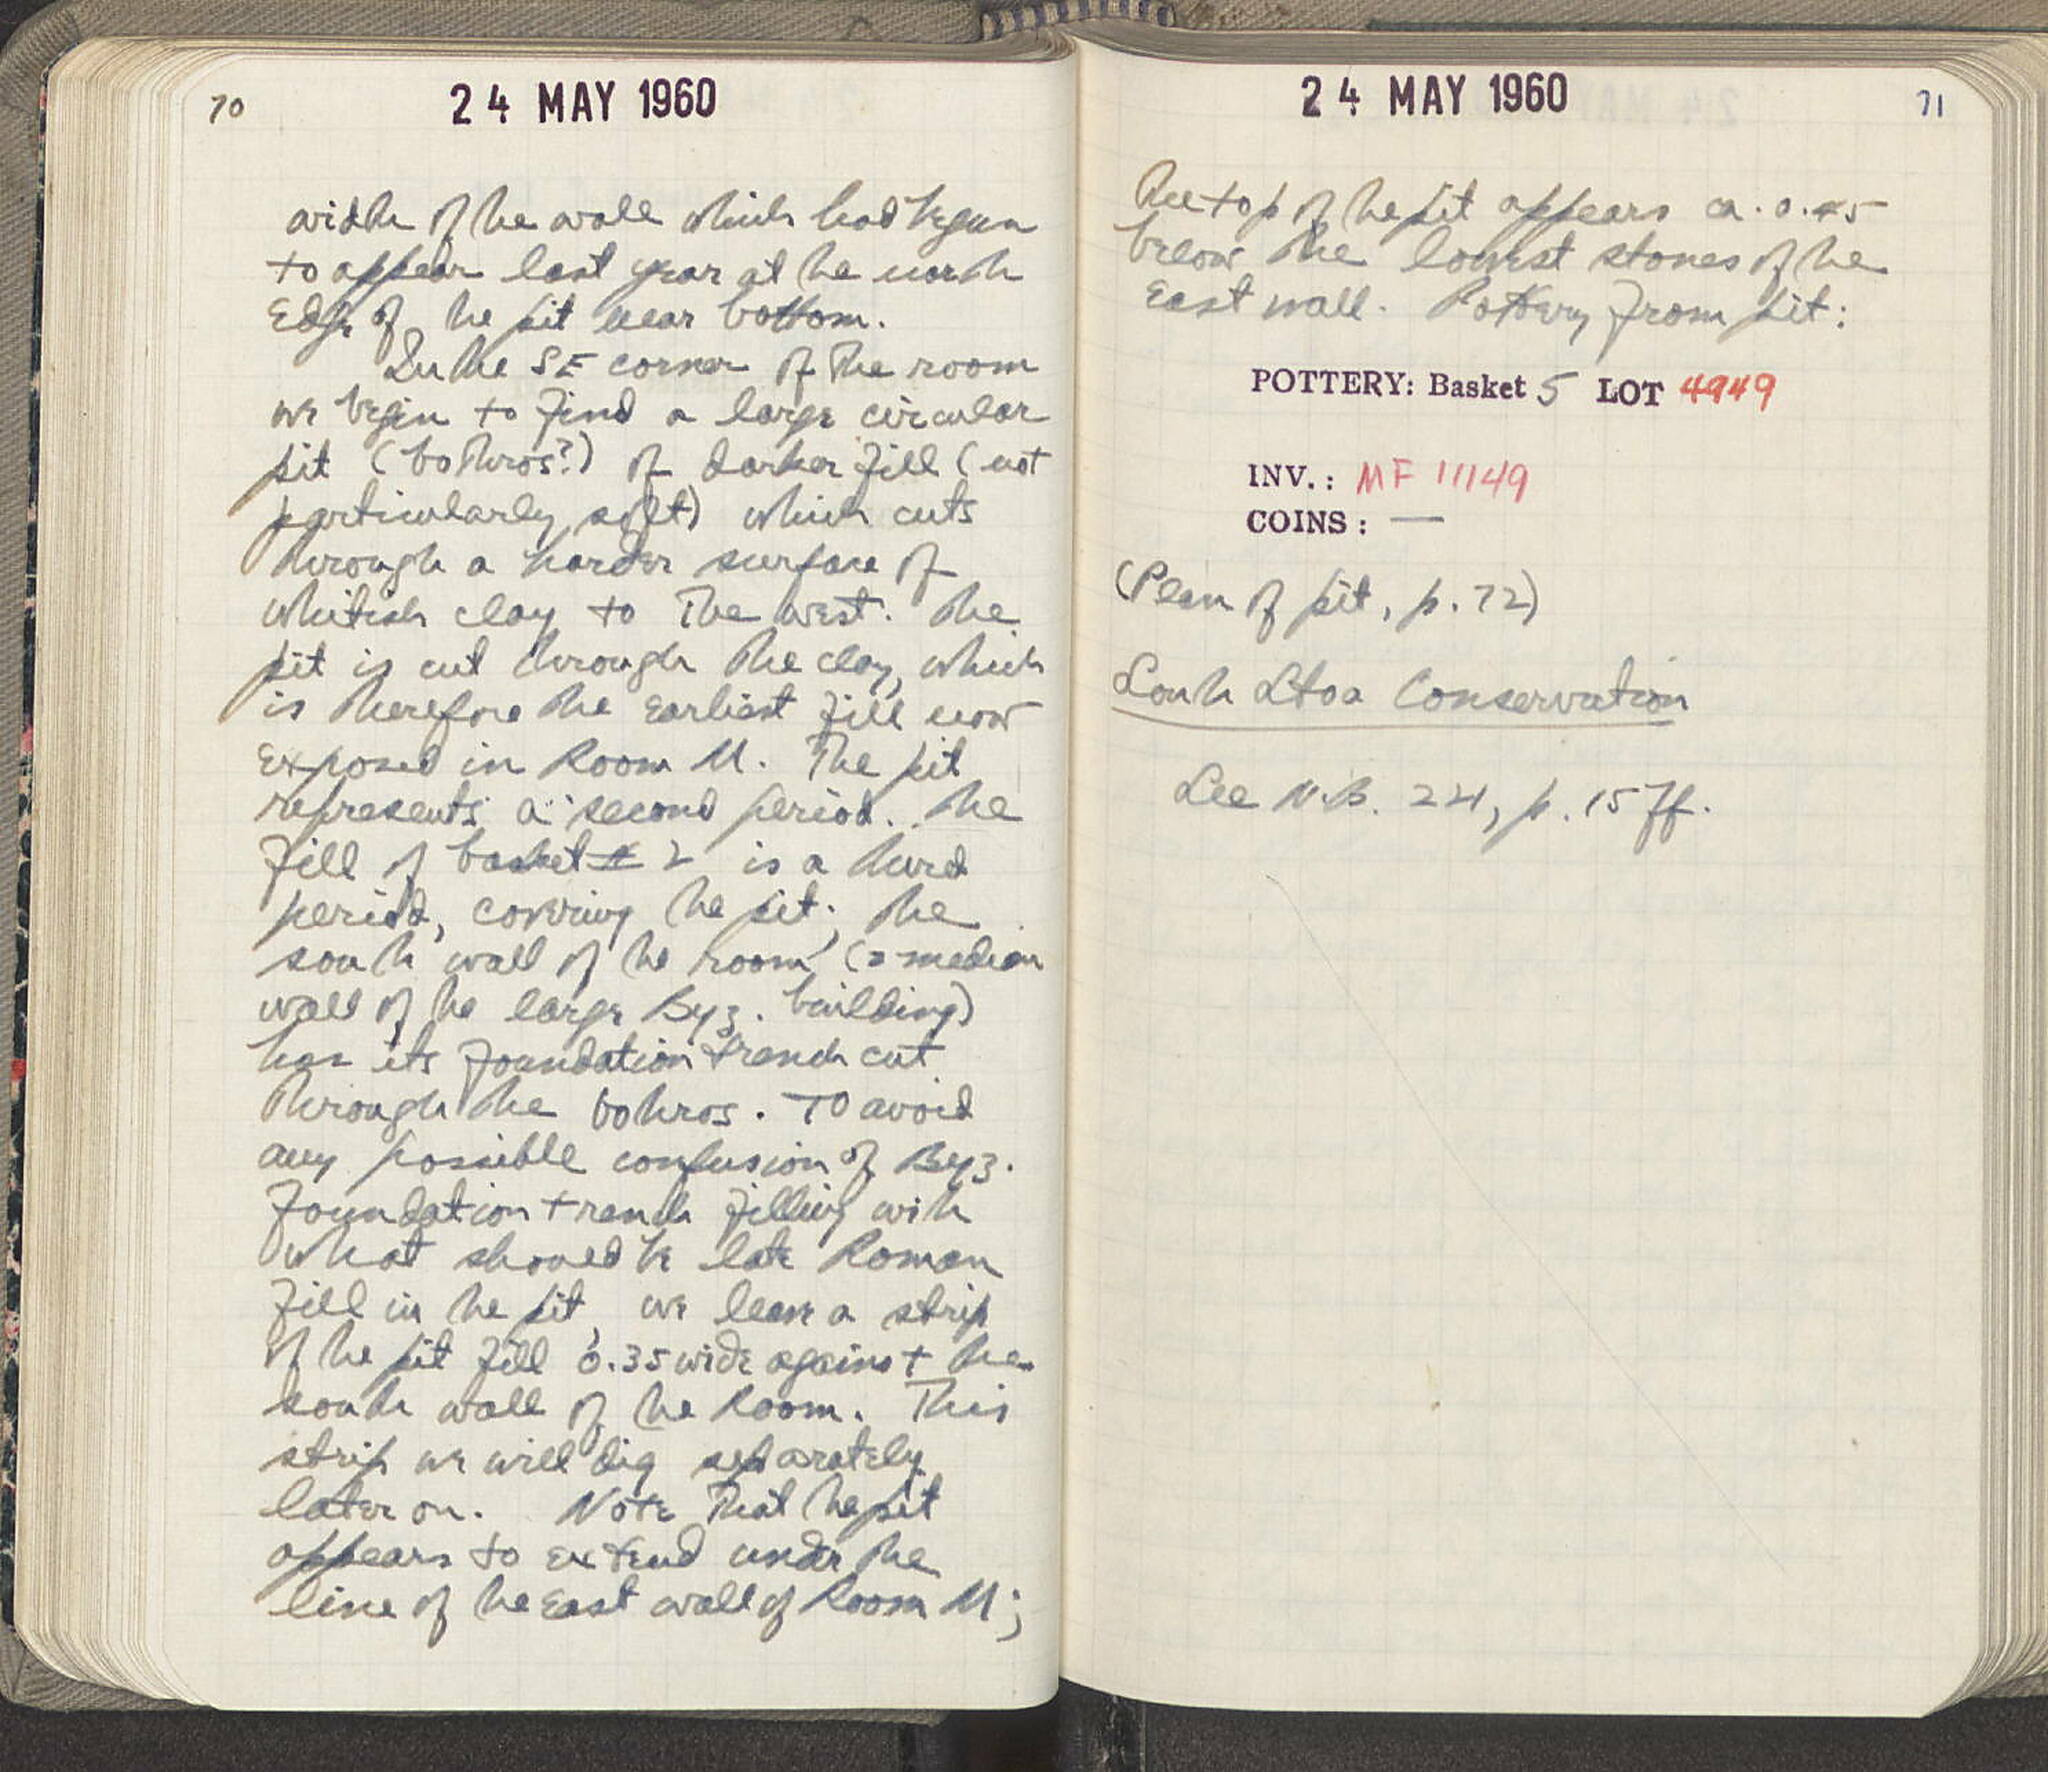 70
24 MAY 1960
width of the wall which had begun
to appear last year at the north
edge of the pit near bottom.
In the SE corner of the room
we begin to find a large circular
pit (bothros?) of darker fill (not
particularly soft) which cuts
through a harder surface of
whitish clay to the west. The
pit is cut through the clay, which
is therefore the earliest fill now
exposed in Room M. The pit
represents a second period. The
fill of basket # 2 is a third
period, covering the pit; the
south wall of the room (= median
wall of the large Byz. building)
has its foundation trench cut
through the bothros. To avoid
any possible confusion of Byz.
foundation trench filling with
what should be late Roman
fill in the pit, we leave a strip
of the pit fill 0.35 wide against the
south wall of the Room. This
strip we will dig separately
later on. Note that the pit
appears to extend under the
line of the East wall of Room M;
24 MAY 1960
71
the top of the pit appears ca. 0.45
below the lowest stones of the
East wall. Pottery from pit:
POTTERY: Basket 5 LOT 4949
INV.: MF 11149
COINS: —
(Plan of pit, p. 72)
South Stoa Conservation
See N.B. 221, p. 15 ff.